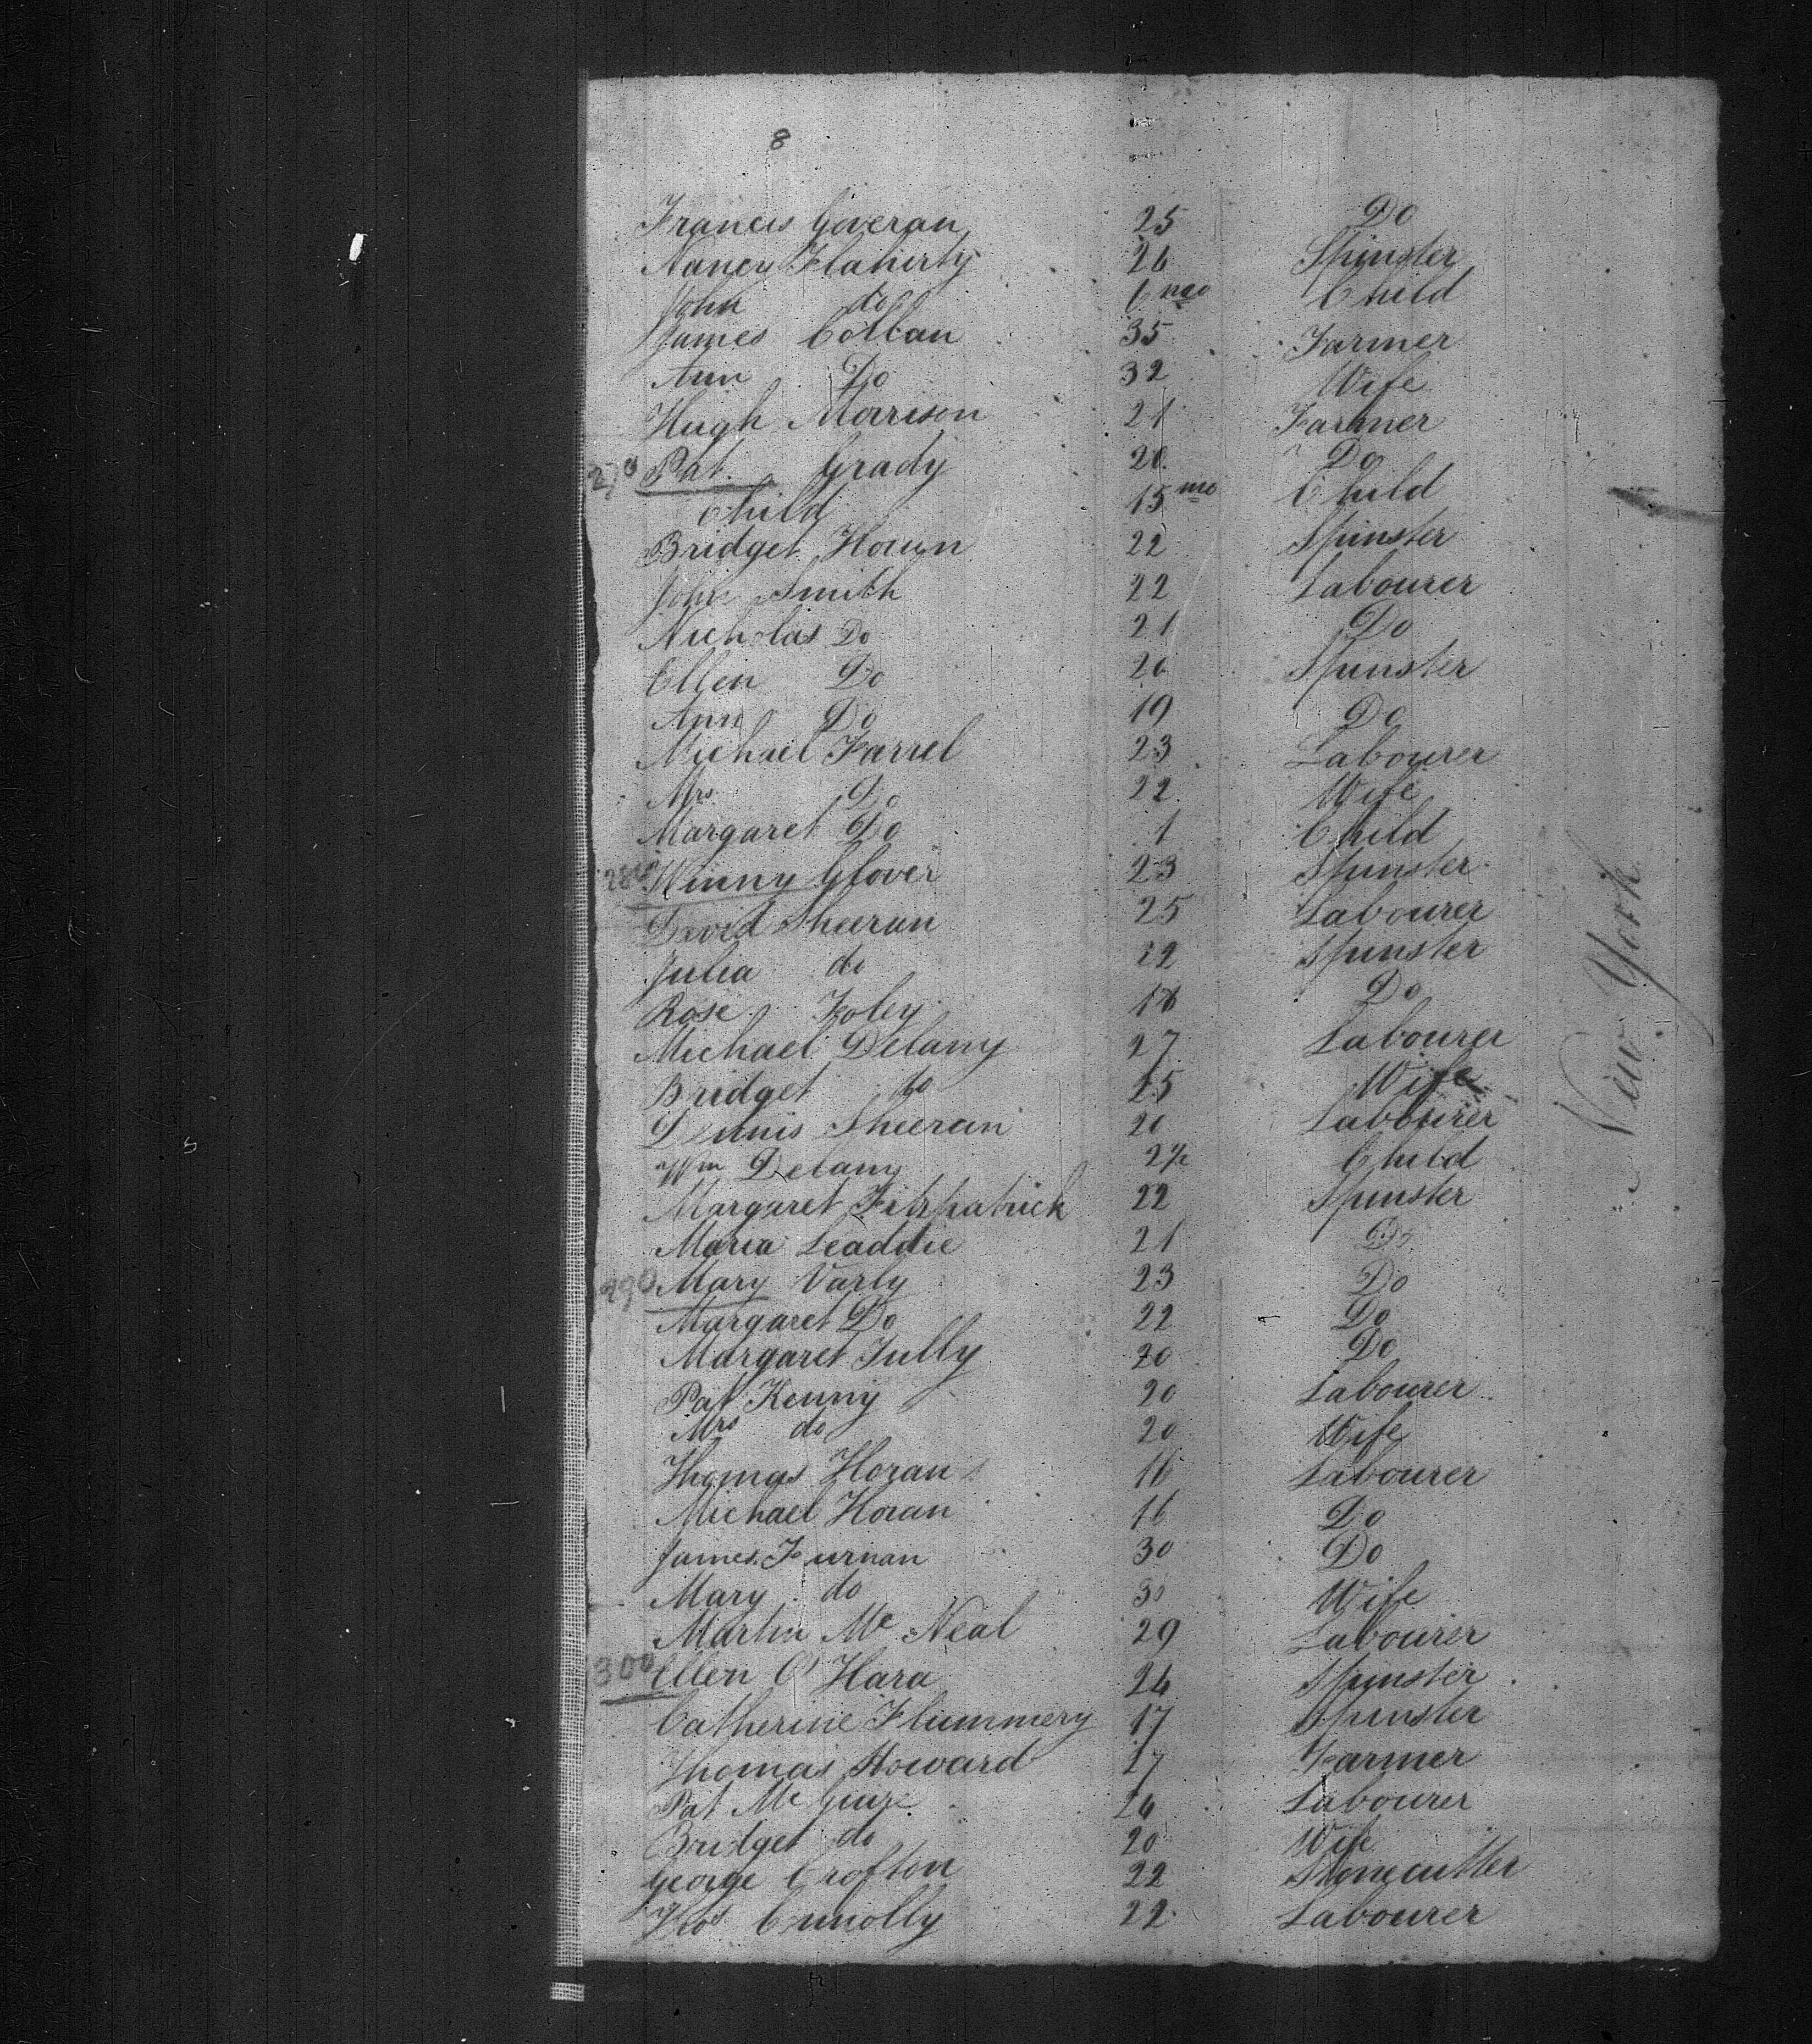 8
Francis Goveran 25 Do
Nancy Flaherty 26 Spinster
John do 6 mo Child
James Collan 35 Farmer
Ann Do 32 Wife
Hugh Morrison 21 Farmer
270 Pat. Grady 20 Do
Child 15 mo Child
Bridget Horan 22 Spinster
John Smith 22 Labourer
Nicholas Do 21 Do
Ellen Do 20 Spinster
Ann Do 19 Do
Michael Farrel 23 Labourer
Mrs Do 22 Wife
Margaret Do 1 Child
280 Winny Glover 23 Spinster
David Sheeran 25 Labourer
Julia do 22 Spinster
Rose Foley 18 Do
Michael Delany 27 Labourer
Bridget do 25 Wife
Dennis Sheeran 20 Labourer
Wm Delany 2½ Child
Margaret Fitzpatrick 22 Spinster
Maria Leaddie 21 Do
290 Mary Varly 23 Do
Margaret Do 22 Do
Margaret Tully 20 Do
Pat Kenny 20 Labourer
Mrs do 20 Wife
Thomas Horan 16 Labourer
Michael Horan 16 Do
James Furnan 30 Do
Mary do 30 Wife
Martin Mc Neal 29 Labourer
300 Ellen O'Hara 24 Spinster
Catherine Flummery 17 Spinster
Thomas Howard 27 Farmer
Pat Mc Guire 26 Labourer
Bridget do 20 Wife
George Crofton 22 Stonecutter
Thos Cunolly 22 Labourer
New York